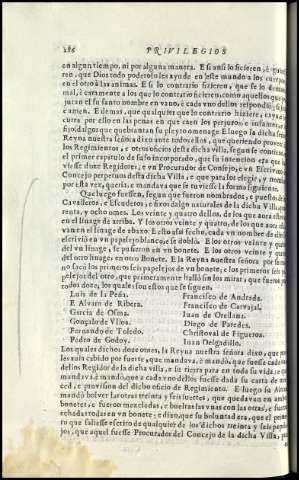 186 PRIVILEGIOS
en algun tiempo, ni por alguna manera. E si ansi lo fizieren,
ren, que Dios todo poderoso les ayude en este mundo a los cuerpos
en el otro à las animas. E si lo contrario fizieren, que se lo
mal, è caramente a los que lo contrario fizieren, como aquellos que
juran el su santo nombre en vano, è cada vno dellos respondiò, si
Amen. E demas, que qualquier que lo contrario hiziere, caya, e
curra por ello en las penas en que caen los perjuros, e infames,
fijosdalgos que quebrantan su pleyto omenage. E luego la dicha
Reyna nuestra señora dixo ante todos ellos, que queriendo proveer
los Regimientos, e otros oficios desta dicha villa, segun se contiene
el primer capitulo de suso incorporado, que su intencion era que
viesse doze Regidores, e vn Procurador de Consejo, e vn Escrivano
Concejo perpetuos desta dicha Villa, e que para los elegir, y nombrar
por esta vez, queria, e mandava que se tuviesse la forma siguiente.
Que luego fuessen, segun que fueron nombrados, e puestos de
Cavalleros, e Escuderos, e fixosdalgo naturales de la dicha Villa,
renta, y ocho omes. Los veinte y quatro dellos, de los que aora estan
en el linage de arriba. Y los otros veinte y quatro, de los que aora
van en el linage de abaxo. E esto assi fecho, cada vn nombre de
escrivió en vn papelejo blanco, e se dobló. E los veinte y quatro
de vn linage, se pusieron en vn bonete. E los otros veinte y
del otro linage, en otro Bonete. E la Reyna nuestra señora por su
no sacó los primeros seis papelejos de vn bonete, e los primeros seis
pelejos del otro, que primeramente halló sin los mirar, que fueron
todos doze, los quales son estos que se siguen.
Luis de la Peña. Francisco de Andrada.
E Alvaro de Ribera. Francisco de Carvajal.
Garcia de Osma. Juan de Orellana.
Gonçalo de Vlloa. Diego de Paredes.
Fernando de Toledo. Christoval de Figueroa.
Pedro de Godoy. Juan Delgadillo.
Los quales dichos doze omes, la Reyna nuestra señora dixo, que
les avia cabido por suerte, que mandava, è mandó, que fuesse cada
dellos Regidor de la dicha villa, de su tierra para en toda su vida,
mandava, è mandó, que a cada vno dellos fuesse dada su carta de
ced, e provision del dicho oficio de Regimiento. E luego su Alteza
mandó bolver las otras treinta y seis suertes, que quedavan en ambos
bonetes, e fueron mezcladas, e bueltas las vnas con las otras, e fueron
echadas todas en vn bonete; e dixo, que su boluntad era, que el primero
que saliesse escrito de qualquier de los dichos treinta y seis
jos, que aquel fuesse Procurador del Concejo de la dicha Villa,